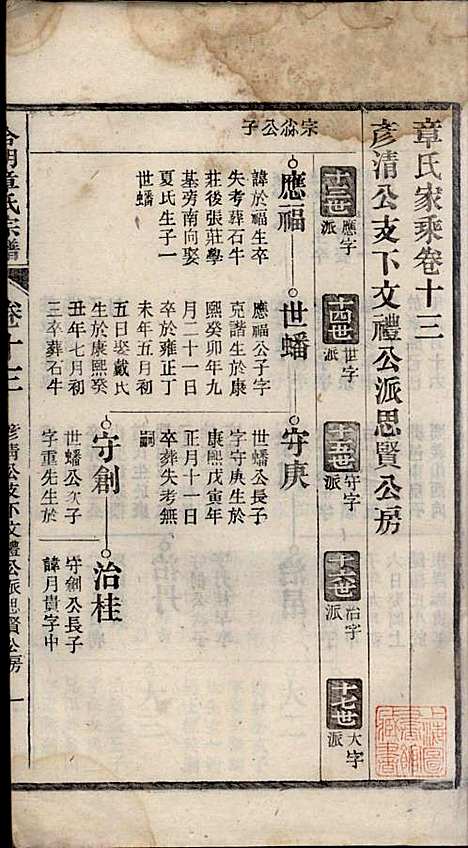 章氏家乘卷十三
彥清公支下文禮公派思賢公房
十三世
應字派
十四世
世字派
十五世
守字派
十六世
治字派
十七世
大字派
宗㳽公子
應福
諱於福生卒
失考葬石牛
莊後張莊學
基旁南向娶
夏氏生子一
世蟠
世蟠
應福公子字
克諧生於康
熙癸卯年九
月二十一日
卒於雍正丁
未年五月初
五日娶戴氏
生於康熙癸
丑年七月初
三卒葬石牛
守庚
世蟠公長子
字守庚生於
康熙戊寅年
正月十一日
卒葬失考無
嗣
守創
世蟠公次子
字重先生於
治桂
守創公長子
諱月貴字中
章氏宗譜
卷十三
彥清公支下文禮公派思賢公房
一
上海圖書館藏書